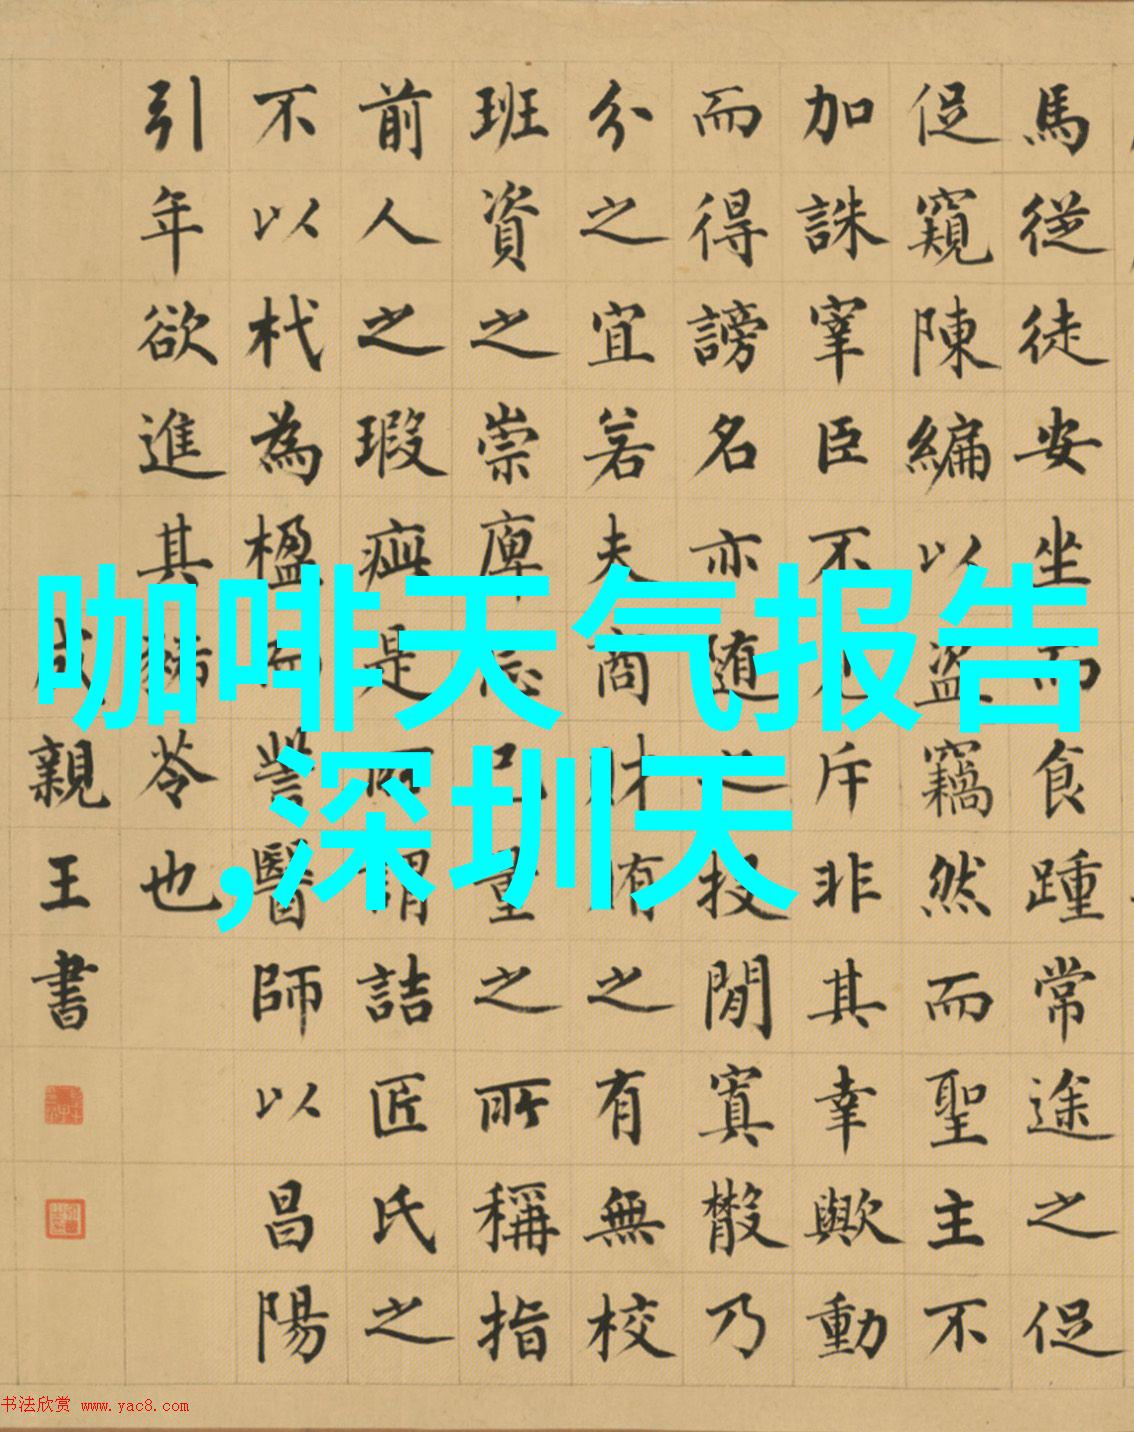 馬從徒安坐而食踵常途之促
促窺陳編以盜竊然而聖主不
加誅宰臣不見斥非其幸歟動
而得謗名亦随之投閒寘散乃
分之宜若夫商財賄之有無校
班資之崇庳忘己量之所稱指
前人之瑕疵是所謂詰匠氏之
不以杙為楹而訾醫師以昌陽
引年欲進其豨苓也
成親王書
咖啡天气报告
,深圳天
书法欣赏 www.yac8.com